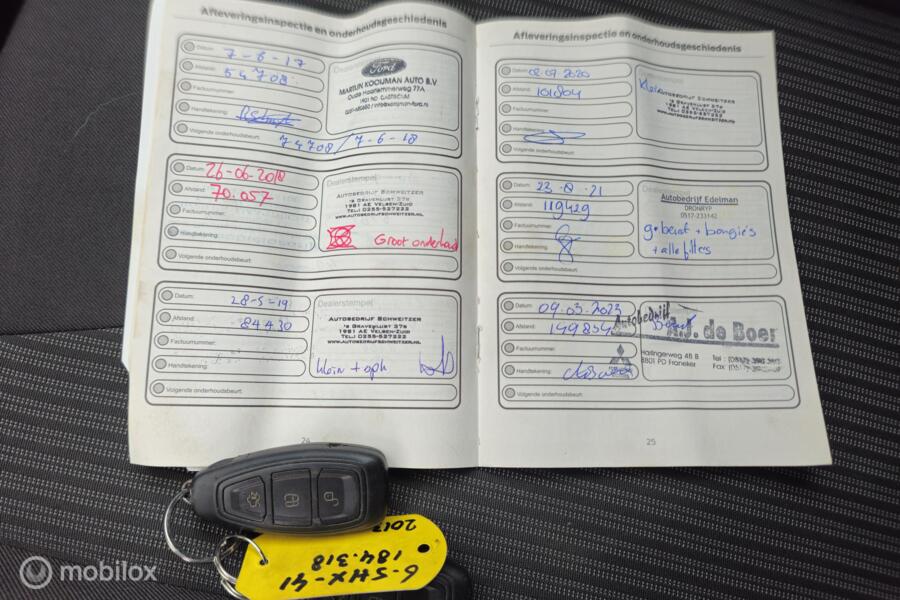 Afleveringsinspectie en onderhoudsgeschiedenis
Datum: 7-6-17
Afstand: 54708
Factuurnummer:
Handtekening:
Volgende onderhoudsbeurt: 74708 / 7-6-18
Dealerstempel
Ford
MARTIJN KOOIJMAN AUTO B.V.
Oude Haarlemmerweg 77A
Datum: 26-06-2018
Afstand: 70.057
Factuurnummer:
Handtekening:
Volgende onderhoudsbeurt:
Dealerstempel
AUTOBEDRIJF SCHWEITZER
'S GRAVENLUST 37B
1981 AE VELSEN-ZUID
TEL: 0255-527222
WWW.AUTOBEDRIJFSCHWEITZER.NL
Groot onderhoud
Datum: 28-5-19
Afstand: 84430
Factuurnummer:
Handtekening:
Volgende onderhoudsbeurt:
Dealerstempel
AUTOBEDRIJF SCHWEITZER
'S GRAVENLUST 37B
1981 AE VELSEN-ZUID
TEL: 0255-527222
WWW.AUTOBEDRIJFSCHWEITZER.NL
klein + aph
Afleveringsinspectie en onderhoudsgeschiedenis
Datum: 02.07.2020
Afstand: 101804
Factuurnummer:
Handtekening:
Volgende onderhoudsbeurt:
Dealerstempel
klein
AUTOBEDRIJF SCHWEITZER
'S GRAVENLUST 37B
1981 AE VELSEN-ZUID
TEL: 0255-527222
WWW.AUTOBEDRIJFSCHWEITZER.NL
Datum:
Afstand: 119429
Factuurnummer:
Handtekening:
Volgende onderhoudsbeurt:
Dealerstempel
Autobedrijf Edelman
DRONRYP
0517-233142
g. beurt + bougie's
+ alle filters
Datum: 09.03.2023
Afstand: 149854
Factuurnummer:
Handtekening:
Volgende onderhoudsbeurt:
Autobedrijf
A.J. de Boer
Harlingerweg 48 B
8801 PD Franeker
Tel :
Fax
25
2017
184.318
6-SHX-41
mobilox